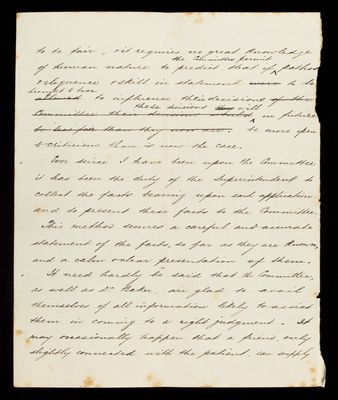 to be fair, it requires no great knowledge
the Committee permit
of human nature to predict that if pathos
eloquence & skill in statement were to be
brought to bear
allowed to influence their decisions of the
these decisions they will
Committee their decisions would in future
to less fair than they now are. be more open
to criticism than is now the case.
Ever since I have been upon the Committee
it has been the duty of the Superintendent to
collect the facts bearing upon each application
and to present these facts to the Committee.
This method secures a careful and accurate
statement of the facts, so far as they are known,
and a calm & clear presentation of them.
It need hardly be said that the Committee,
as well as Dr Baker, are glad to avail
themselves of all information likely to assist
them in coming to a right judgment. It
may occasionally happen that a friend, only
slightly connected with the patient, can supply